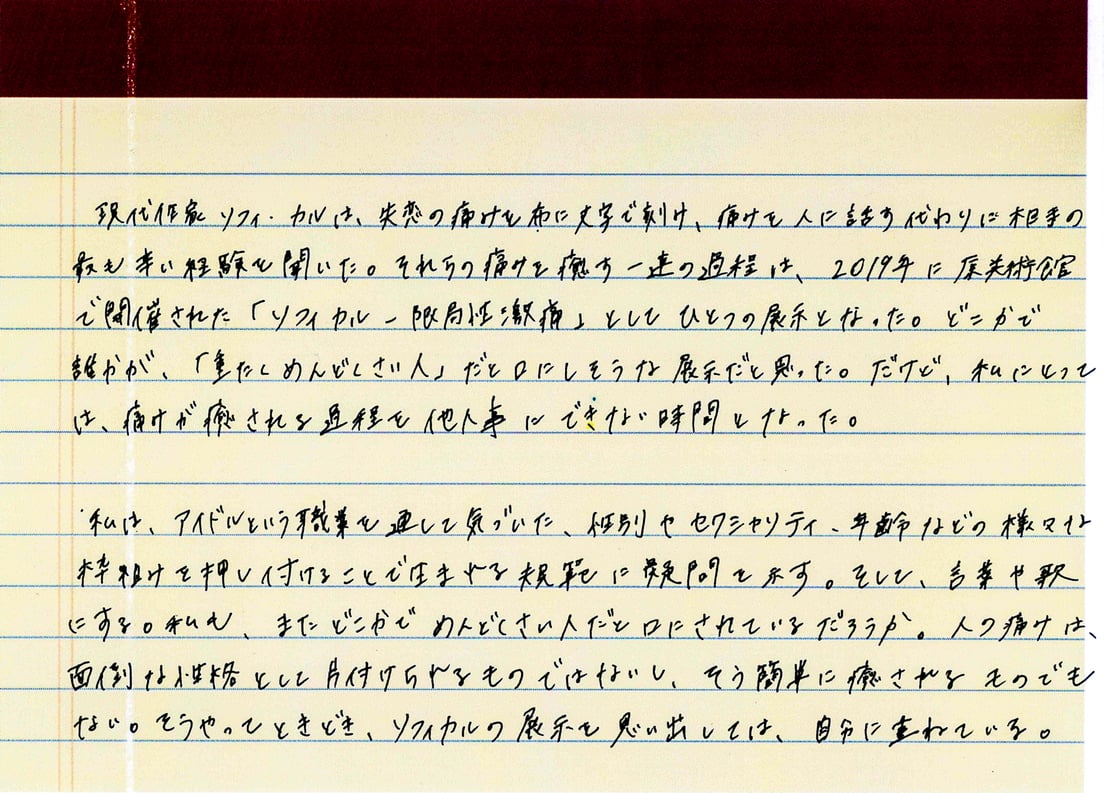 現代作家ソフィ・カルは、失恋の痛みを布に文字で刻み、痛みを人に話す代わりに相手の
最も辛い経験を聞いた。それらの痛みを癒す一連の過程は、2019年に原美術館
で開催された「ソフィカル ― 限局性激痛」としてひとつの展示となった。どこかで
誰かが、「重たくめんどくさい人」だと口にしそうな展示だと思った。だけど、私にとって
は、痛みが癒される過程を他人事にできない時間となった。
私は、アイドルという職業を通して気づいた、性別やセクシャリティ、年齢などの様々な
枠組みを押し付けることで生まれる規範に疑問を示す。そして、言葉や歌
にする。私も、またどこかでめんどくさい人だと口にされているだろうか。人の痛みは、
面倒な性格として片付けられるものではないし、そう簡単に癒されるものでも
ない。そうやってときどき、ソフィカルの展示を思い出しては、自分に重ねている。